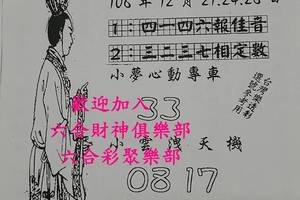 108年12月21.24.26日
1：四一四六報佳音
2：三二三七相定數
小夢心動專車
台灣樂透彩
選號參考用
33
歡迎加入
六合財神俱樂部
小雲洩天機
六合彩聚樂部
08 17